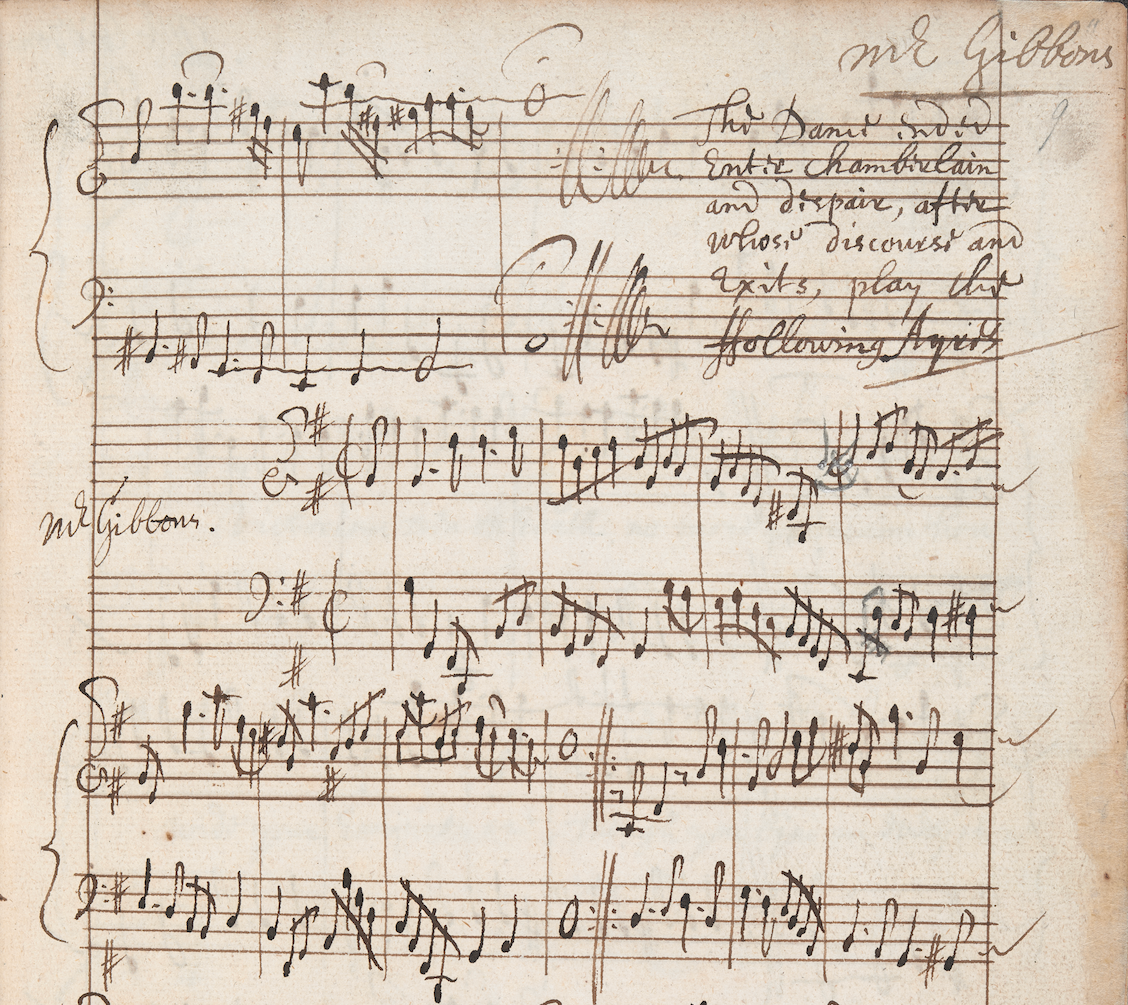 Mr Gibbons
9
The Dance ended
Enter Chamberlain
and despair, after
whose discourse and
Exits, play the
ffollowing Ayres
Mr Gibbons.